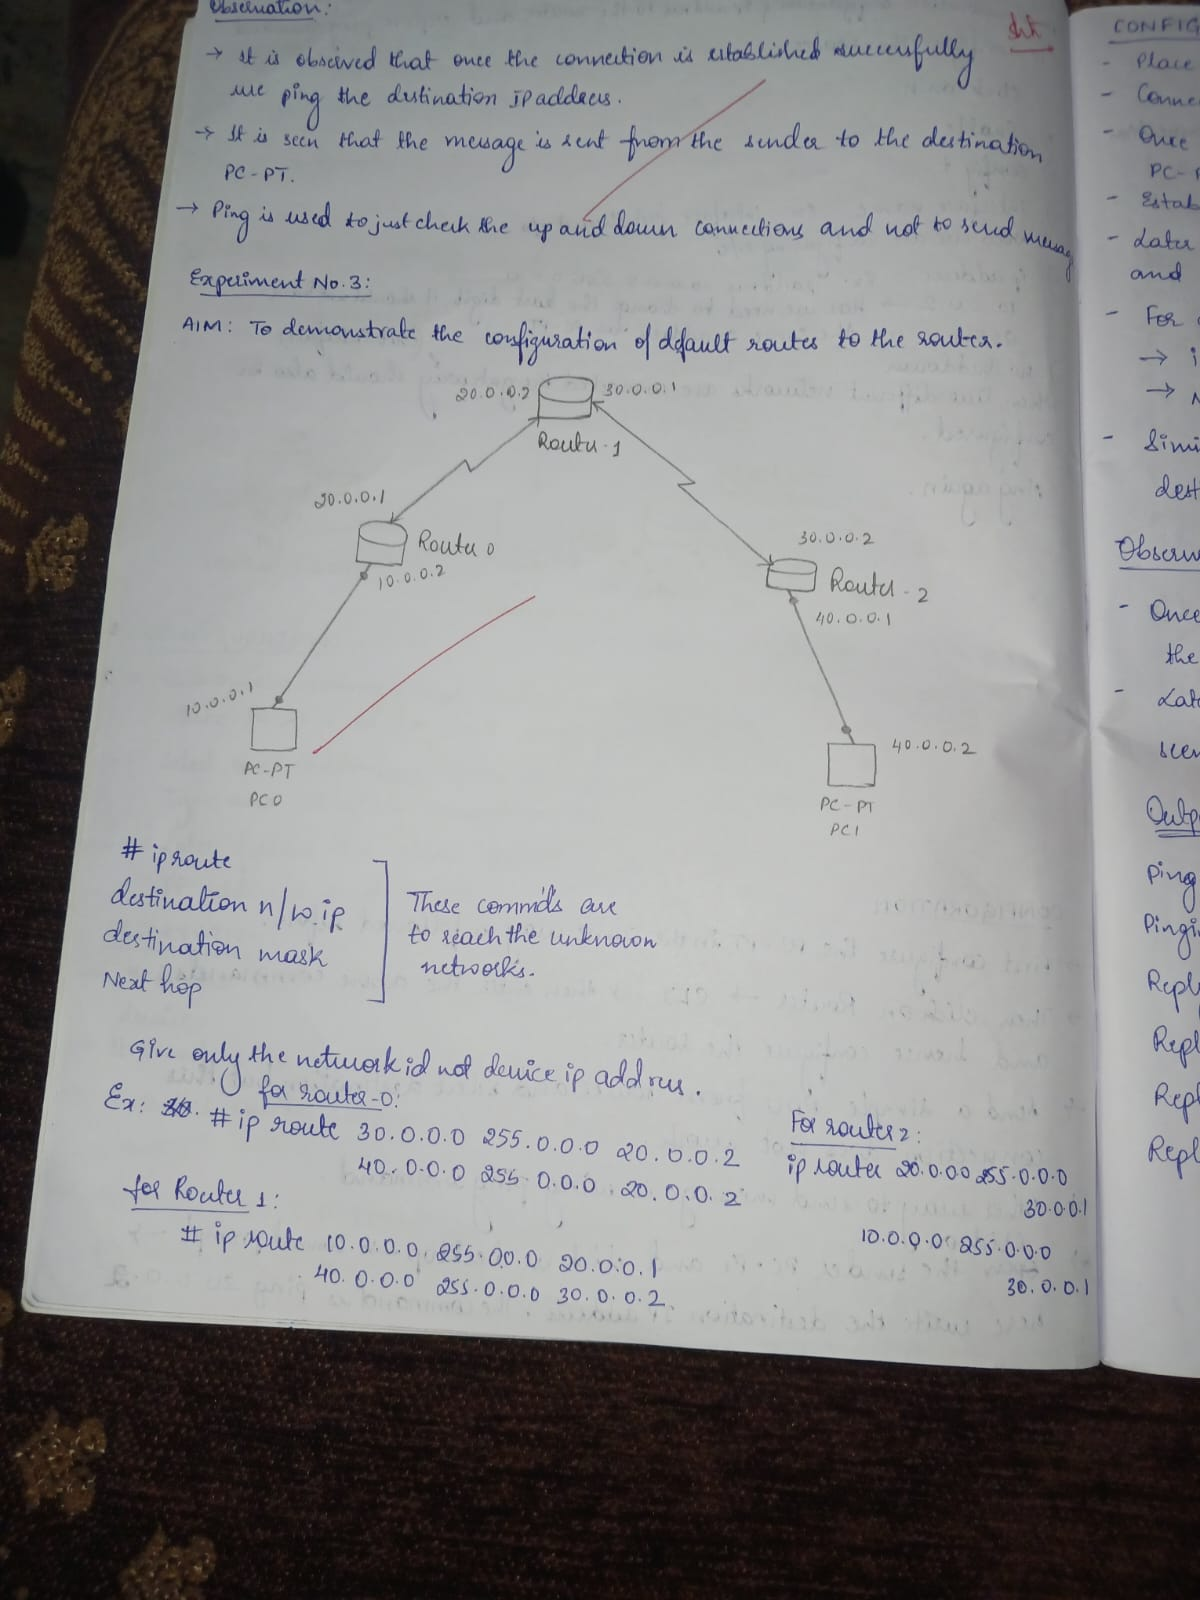 Observation:
→ It is observed that once the connection is established successfully
we ping the destination IP address.
→ It is seen that the message is sent from the sender to the destination
PC-PT.
→ Ping is used to just check the up and down connections and not to send messag
Experiment No. 3:
AIM: To demonstrate the configuration of default routes to the router.
20.0.0.2 30.0.0.1
Router-1
20.0.0.1
Router 0
10.0.0.2
30.0.0.2
Router-2
40.0.0.1
10.0.0.1
PC-PT
PC0
40.0.0.2
PC-PT
PC1
# ip route
destination n/w ip
destination mask
Next hop
These commds are
to reach the unknown
networks.
Give only the network id not device ip address.
for router-0:
Ex: # ip route 30.0.0.0 255.0.0.0 20.0.0.2
40.0.0.0 255.0.0.0 20.0.0.2
for Router 1:
# ip route 10.0.0.0 255.0.0.0 20.0.0.1
40.0.0.0 255.0.0.0 30.0.0.2
For router 2:
ip router 20.0.0.0 255.0.0.0
30.0.0.1
10.0.0.0 255.0.0.0
30.0.0.1
CONFIG
- Place
- Conne
- Once
PC-P
- Estab
- Later
and
- For
→ i
→ N
- Simi
dest
Observ
- Once
the
- Late
seen
Outp
Ping
Pingi
Repl
Repl
Repl
Repl